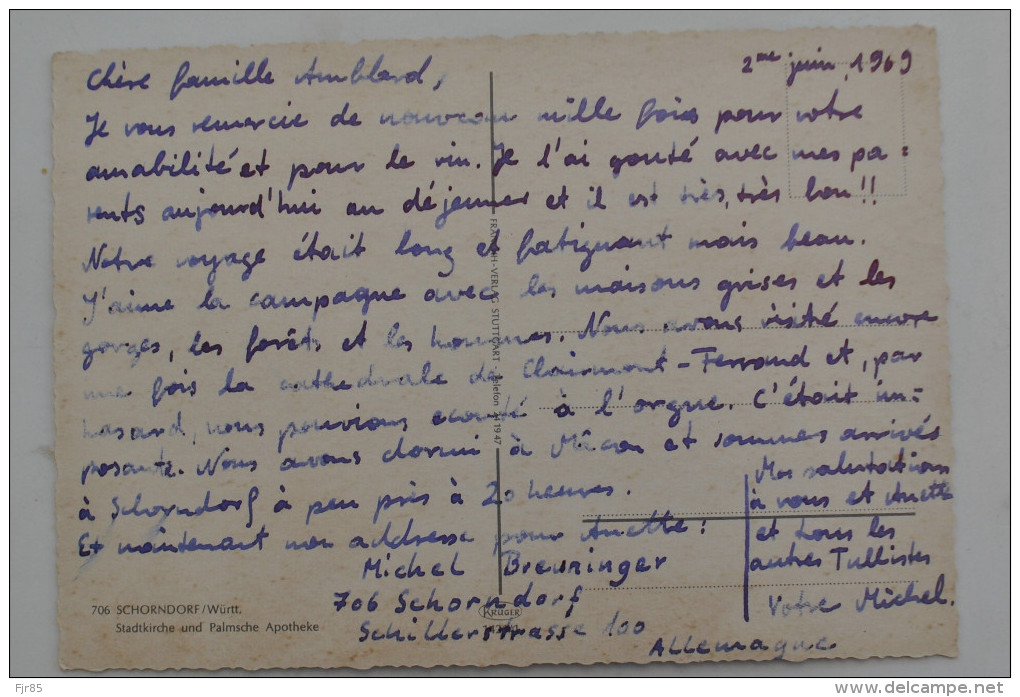 2me juin, 1969
Chère famille Amblard,
Je vous remercie de nouveau mille fois pour votre
amabilité et pour le vin. Je l'ai gouté avec mes pa=
rents aujourd'hui au déjeuner et il est très, très bon!!
Notre voyage était long et fatiguant mais beau.
J'aime la campagne avec les maisons grises et les
gorges, les forêts et les hommes. Nous avons visité encore
une fois la cathedrale de Clairmont-Ferrand et, par
hasard, nous pouvions ecouté à l'orgue. C'était im=
posante. Nous avons dormi à Mâcon et sommes arrivés
à Schorndorf à peu près à 20 heures.
Et maintenant mon addresse pour Anette:
Michel Breuninger
706 Schorndorf
Schillerstrasse 100
Allemagne
Mes salutations
à vous et Anette
et tous les
autres Tullistes
Votre Michel.
706 SCHORNDORF/Württ.
Stadtkirche und Palmsche Apotheke
VERLAG STUTTGART · Telefon
KRÜGER
Fjr85
www.delcampe.net